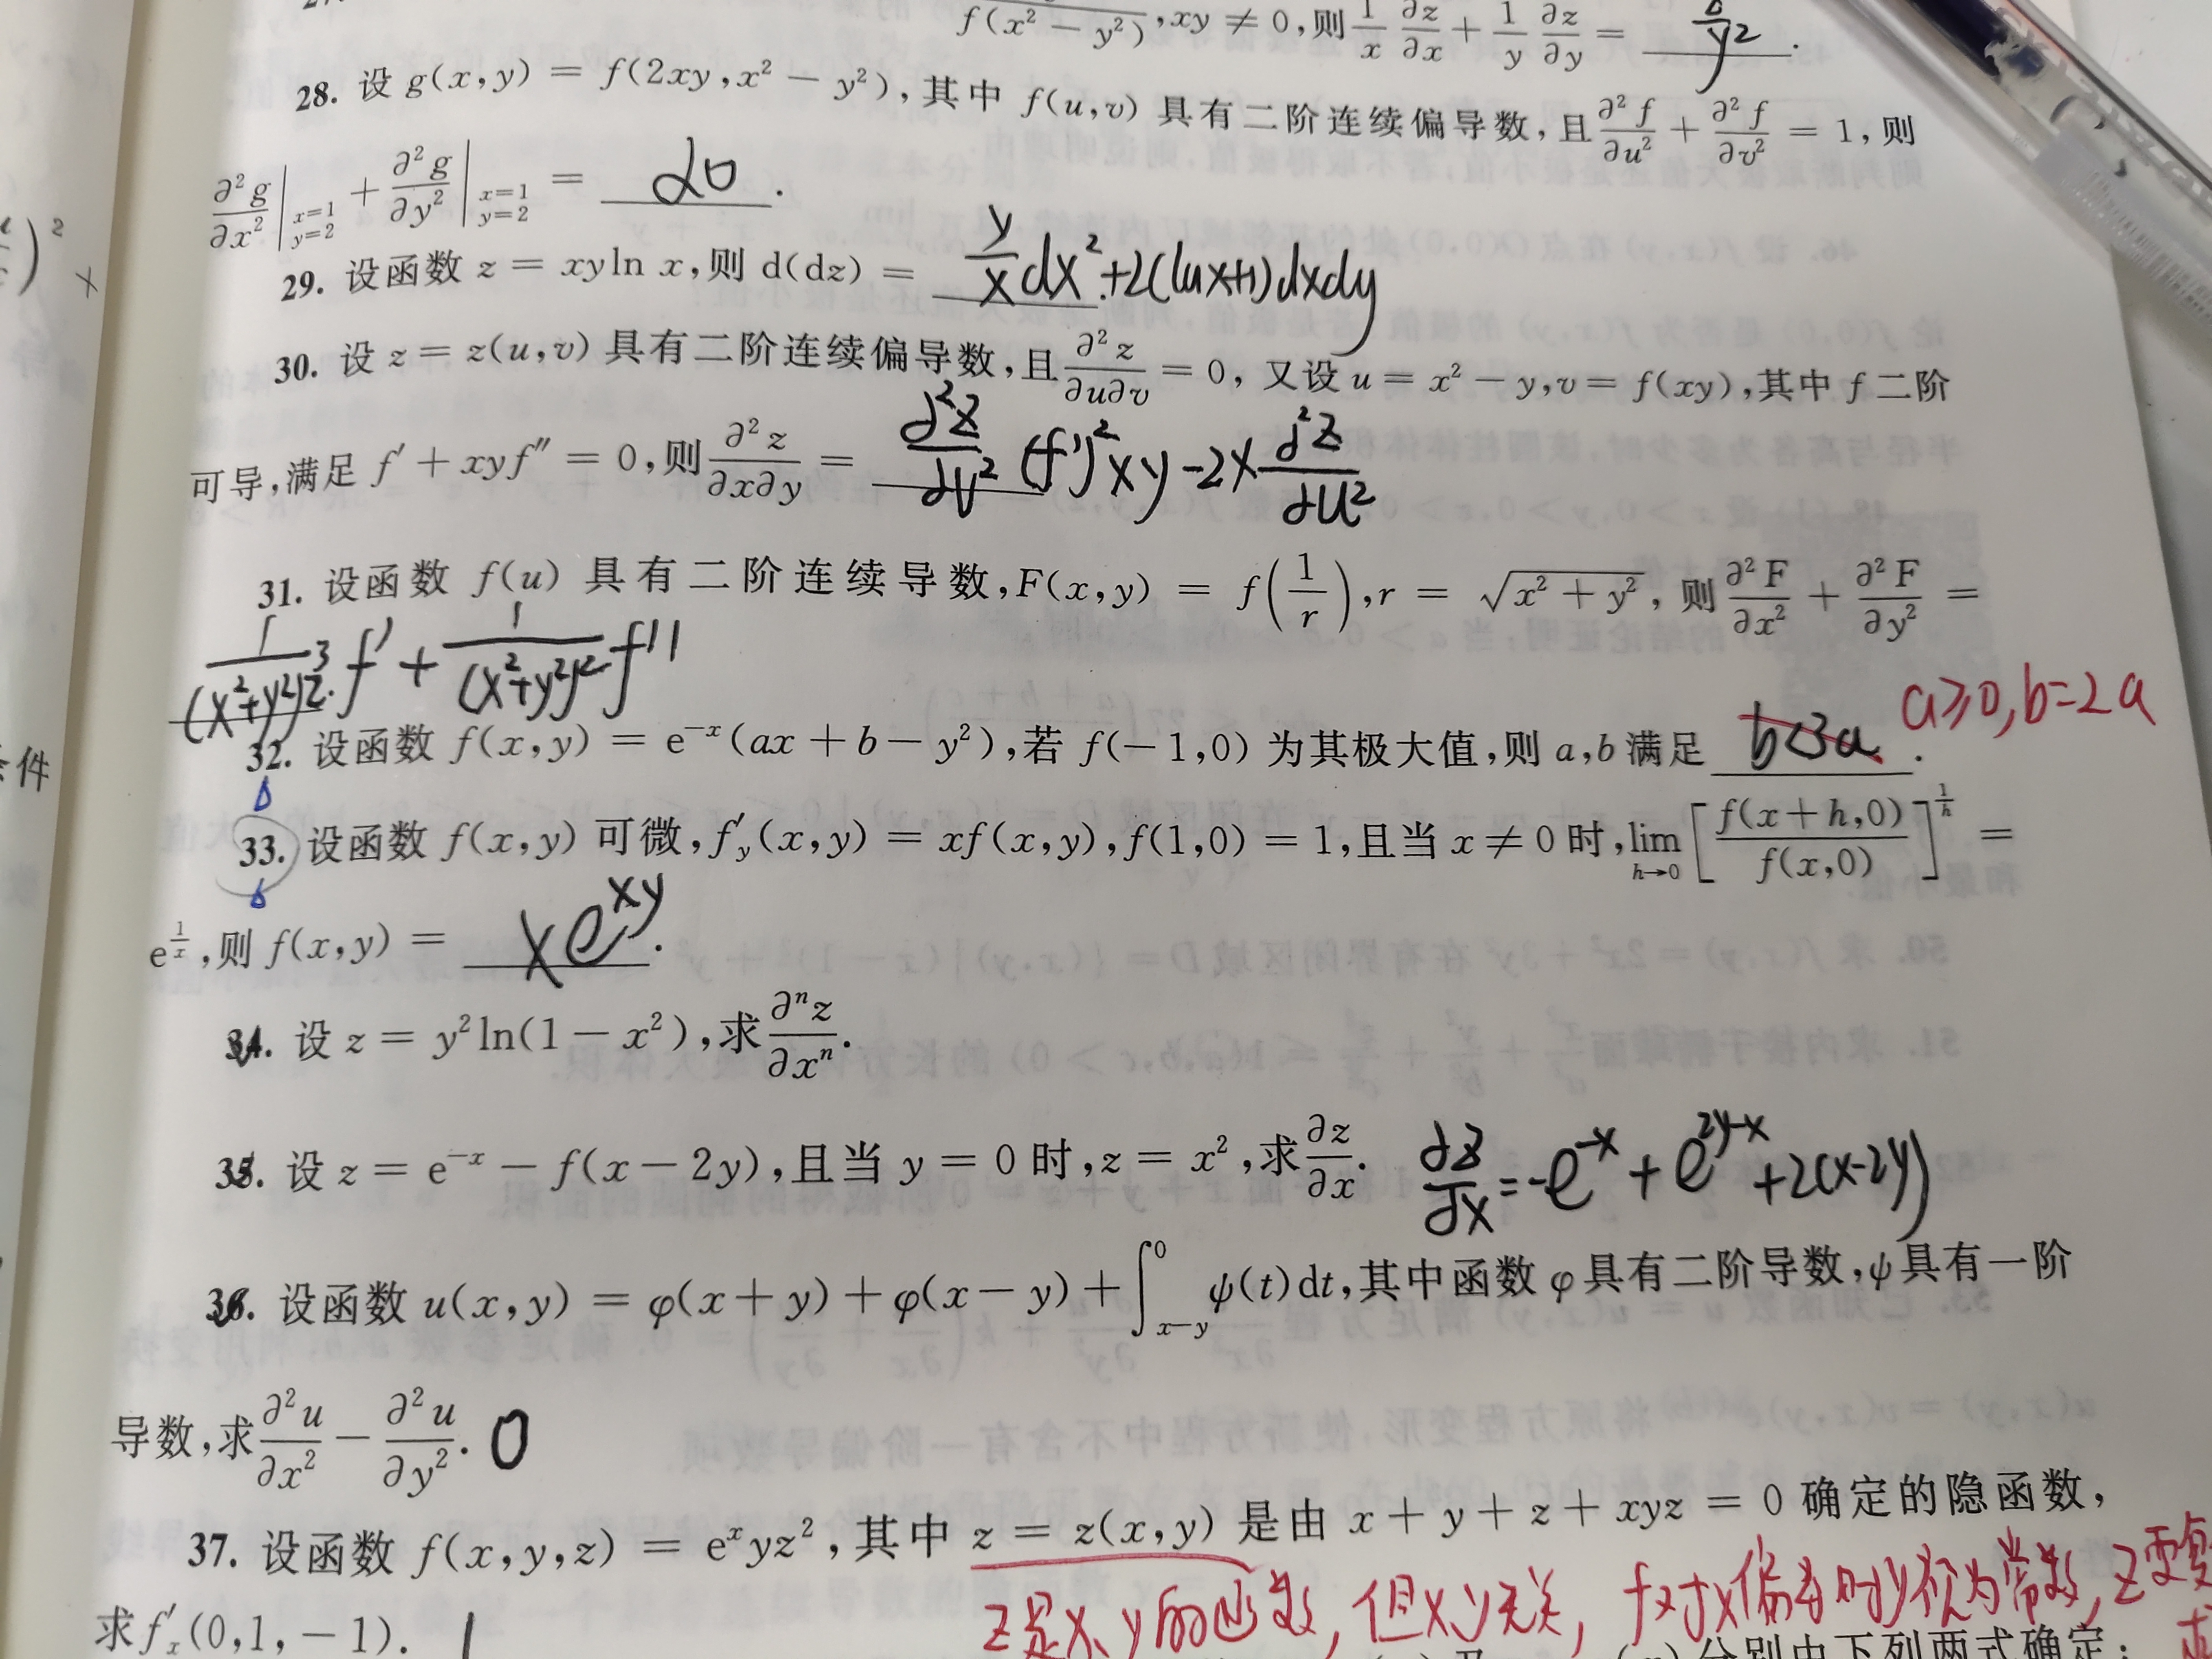 f(x² − y²), xy ≠ 0, 则 1/x ∂z/∂x + 1/y ∂z/∂y = y² .
28. 设 g(x,y) = f(2xy, x² − y²), 其中 f(u,v) 具有二阶连续偏导数, 且 ∂²f/∂u² + ∂²f/∂v² = 1, 则
∂²g/∂x² |x=1 y=2 + ∂²g/∂y² |x=1 y=2 = 20 .
29. 设函数 z = xyln x, 则 d(dz) = y/x dx² + 2(lnx+1)dxdy
30. 设 z = z(u,v) 具有二阶连续偏导数, 且 ∂²z/∂u∂v = 0, 又设 u = x² − y, v = f(xy), 其中 f 二阶
可导, 满足 f′ + xyf″ = 0, 则 ∂²z/∂x∂y = ∂²z/∂v² (f′)²xy − 2x ∂²z/∂u²
31. 设函数 f(u) 具有二阶连续导数, F(x,y) = f(1/r), r = √(x² + y²), 则 ∂²F/∂x² + ∂²F/∂y² =
1/(x²+y²)^(3/2) . f′ + 1/(x²+y²)² f″
32. 设函数 f(x,y) = e^(−x)(ax + b − y²), 若 f(−1,0) 为其极大值, 则 a,b 满足 b<3a . a≥0, b=2a
33. 设函数 f(x,y) 可微, f′_y(x,y) = xf(x,y), f(1,0) = 1, 且当 x ≠ 0 时, lim h→0 [f(x+h,0)/f(x,0)]^(1/h) =
e^(1/x), 则 f(x,y) = xe^(xy) .
34. 设 z = y²ln(1 − x²), 求 ∂ⁿz/∂xⁿ.
35. 设 z = e^(−x) − f(x − 2y), 且当 y = 0 时, z = x², 求 ∂z/∂x. ∂z/∂x = −e^(−x) + e^(2y−x) + 2(x−2y)
36. 设函数 u(x,y) = φ(x + y) + φ(x − y) + ∫_(x−y)^0 ψ(t)dt, 其中函数 φ 具有二阶导数, ψ 具有一阶
导数, 求 ∂²u/∂x² − ∂²u/∂y². 0
37. 设函数 f(x,y,z) = e^x yz², 其中 z = z(x,y) 是由 x + y + z + xyz = 0 确定的隐函数,
z是x、y的函数, 但x、y无关, f对x偏导时y视为常数, z要
求 f′_x(0,1,−1). 1
分别由下列两式确定: